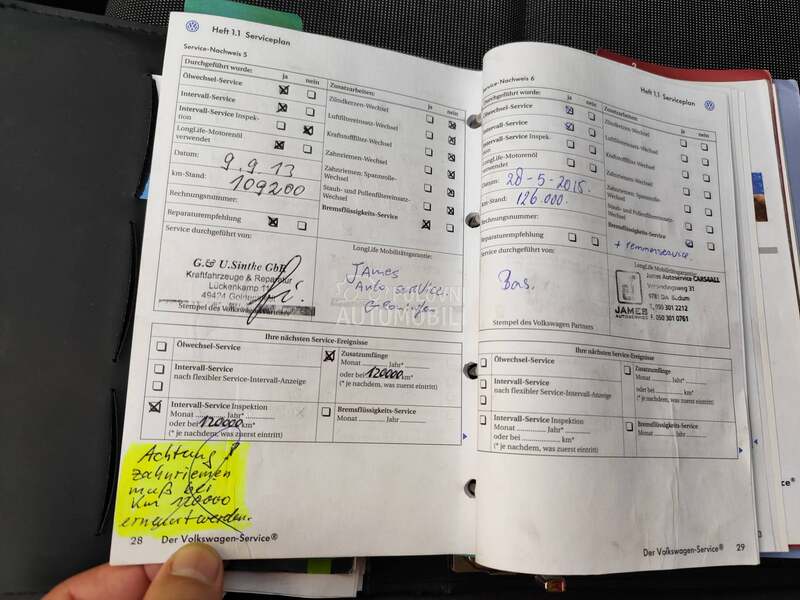 Heft 1.1 Serviceplan
Service-Nachweis 5
Durchgeführt wurde: ja nein
Ölwechsel-Service
Intervall-Service
Intervall-Service Inspek-
tion
LongLife-Motorenöl
verwendet
Datum: 9.9.13
km-Stand: 109200
Rechnungsnummer:
Reparaturempfehlung
Service durchgeführt von:
G.& U.Sinthe GbR
Kraftfahrzeuge & Reparatur
Lückenkamp 11
Stempel des Volkswagen Partners
Zusatzarbeiten: ja nein
Zündkerzen-Wechsel
Luftfiltereinsatz-Wechsel
Kraftstofffilter-Wechsel
Zahnriemen-Wechsel
Zahnriemen; Spannrolle-
Wechsel
Staub- und Pollenfiltereinsatz-
Wechsel
Bremsflüssigkeits-Service
LongLife Mobilitätsgarantie:
James
Auto service
Groningen
AUTOMOBIL
Ihre nächsten Service-Ereignisse
Ölwechsel-Service
Intervall-Service
nach flexibler Service-Intervall-Anzeige
Intervall-Service Inspektion
Monat Jahr*
oder bei 120000 km*
(* je nachdem, was zuerst eintritt)
Zusatzumfänge
Monat Jahr*
oder bei 120000 km*
(* je nachdem, was zuerst eintritt)
Bremsflüssigkeits-Service
Monat Jahr
Achtung!
Zahnriemen
muß bei
Km 120000
erneuert werden.
28 Der Volkswagen-Service®
Heft 1.1 Serviceplan
Service-Nachweis 6
Durchgeführt wurde: ja nein
Ölwechsel-Service
Intervall-Service
Intervall-Service Inspek-
tion
LongLife-Motorenöl
verwendet
Datum: 28-5-2015.
km-Stand: 126.000.
Rechnungsnummer:
Reparaturempfehlung
Service durchgeführt von:
Bas.
Stempel des Volkswagen Partners
Zusatzarbeiten: ja nein
Zündkerzen-Wechsel
Luftfiltereinsatz-Wechsel
Kraftstofffilter-Wechsel
Zahnriemen-Wechsel
Zahnriemen; Spannrolle-
Wechsel
Staub- und Pollenfiltereinsatz-
Wechsel
Bremsflüssigkeits-Service
+ remmenservice.
LongLife Mobilitätsgarantie:
James Autoservice CARSALL
Verlandingsweg 31
9781 DA Bedum
T. 050 301 2212
F. 050 301 0761
JAMES
AUTOSERVICE
Ihre nächsten Service-Ereignisse
Ölwechsel-Service
Intervall-Service
nach flexibler Service-Intervall-Anzeige
Intervall-Service Inspektion
Monat Jahr*
oder bei km*
(* je nachdem, was zuerst eintritt)
Zusatzumfänge
Monat Jahr*
oder bei km*
(* je nachdem, was zuerst eintritt)
Bremsflüssigkeits-Service
Monat Jahr
Der Volkswagen-Service® 29